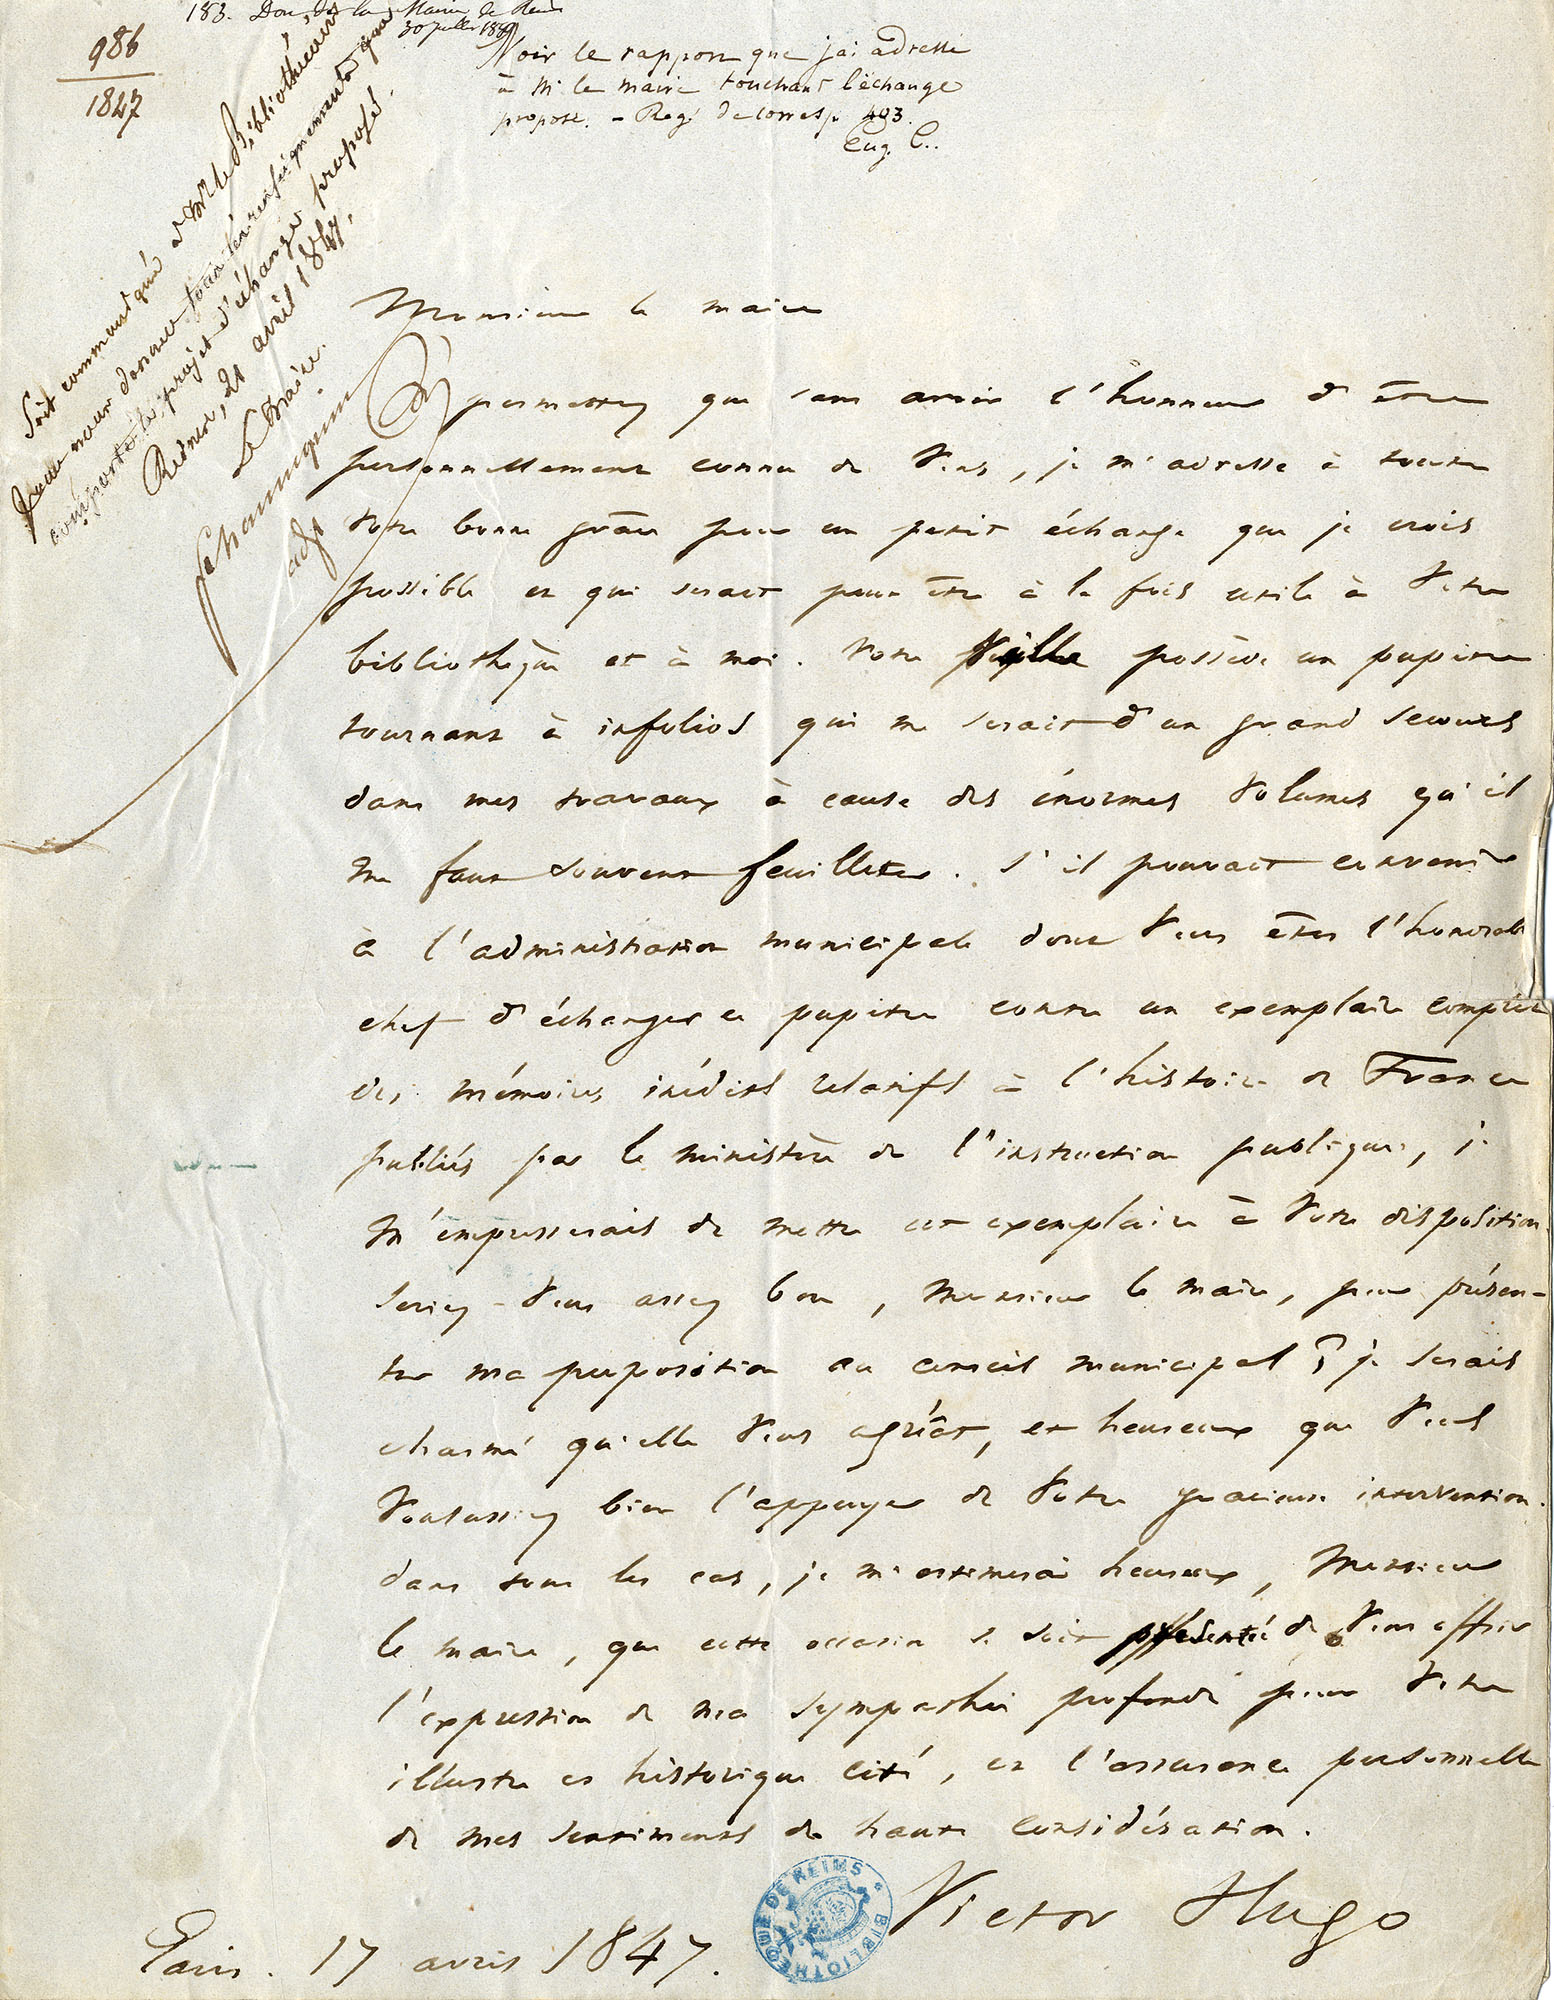 183. Don de la Mairie de Reims
30 juillet 18
986
1847
Voir le rapport que j'ai adressé
à Mr le maire touchant l'échange
proposé. - Reg. de corresp. 493.
Eug. C..
Soit communiqué à Mr le Bibliothécaire,
pour nous donner tous les renseignements que
comporte le projet d'échange proposé.
Reims, 21 avril 1847.
Le Maire.
adjt
Monsieur le maire
permettez que sans avoir l'honneur d'être
personnellement connu de vous, je m'adresse à toute
votre bonne grâce pour un petit échange que je crois
possible et qui serait peut-être à la fois utile à votre
bibliothèque et à moi. Votre ville possède un pupitre
tournant à infolios qui me serait d'un grand secours
dans mes travaux à cause des énormes volumes qu'il
me faut souvent feuilleter. S'il pouvait convenir
à l'administration municipale dont vous êtes l'honorable
chef d'échanger ce pupitre contre un exemplaire complet
des mémoires inédits relatifs à l'histoire de France
publiés par le ministère de l'instruction publique, je
m'empresserais de mettre cet exemplaire à votre disposition.
Seriez-vous assez bon, Monsieur le maire, pour présen-
ter ma proposition au conseil municipal ? je serais
charmé qu'elle vous agréât, et heureux que vous
voulussiez bien l'appuyer de votre gracieuse intervention.
dans tous les cas, je m'estimerai heureux, Monsieur
le maire, que cette occasion se soit présentée de vous offrir
l'expression de ma sympathie profonde pour votre
illustre et historique cité, et l'assurance personnelle
de mes sentiments de haute considération.
Victor Hugo
Paris. 17 avril 1847.
BIBLIOTHEQUE DE REIMS